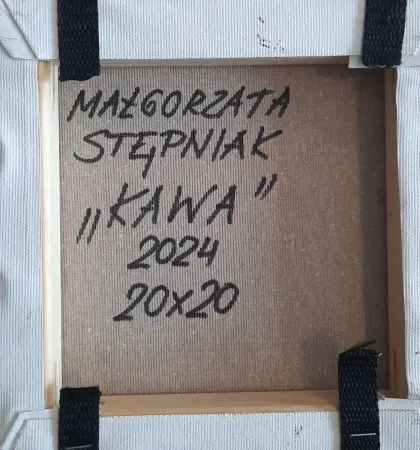 MAŁGORZATA
STĘPNIAK
„KAWA"
2024
20x20